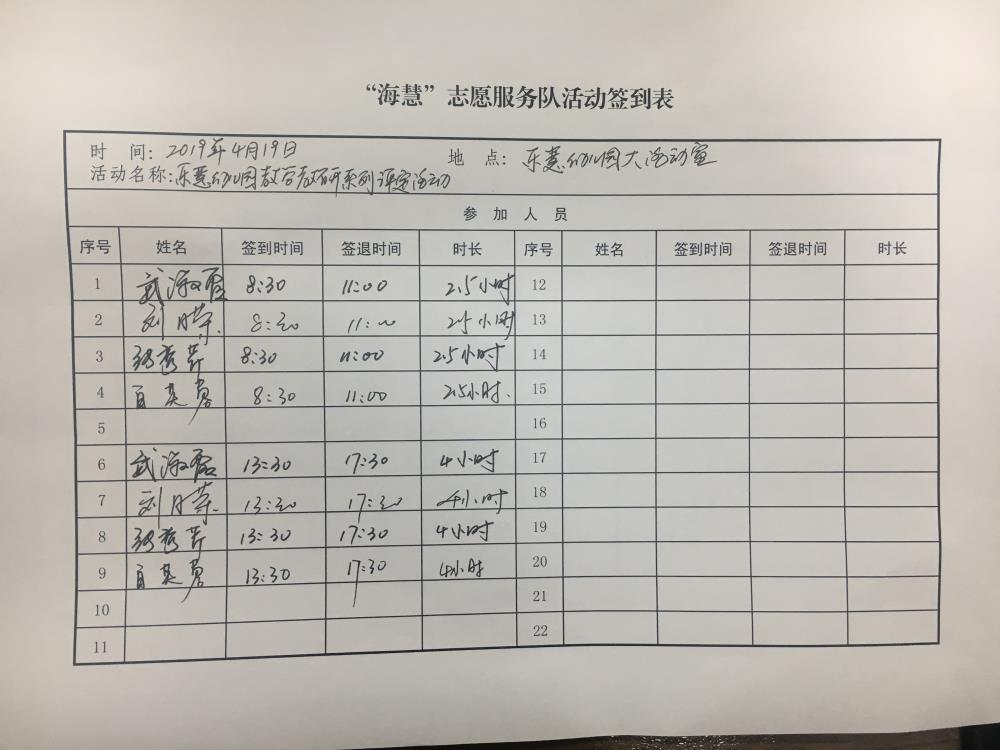 “海慧”志愿服务队活动签到表
时 间：2019年4月19日 地 点：乐慧幼儿园大活动室
活动名称：乐慧幼儿园教学教研系列评定活动
参 加 人 员
序号 姓名 签到时间 签退时间 时长 序号 姓名 签到时间 签退时间 时长
1 武淑霞 8:30 11:00 2.5小时 12
2 刘月荣 8:30 11:00 2.5小时 13
3 8:30 11:00 2.5小时 14
4 8:30 11:00 2.5小时 15
5 16
6 13:30 17:30 4小时 17
7 刘月荣 13:30 17:30 4小时 18
8 13:30 17:30 4小时 19
9 13:30 17:30 4小时 20
10 21
11 22